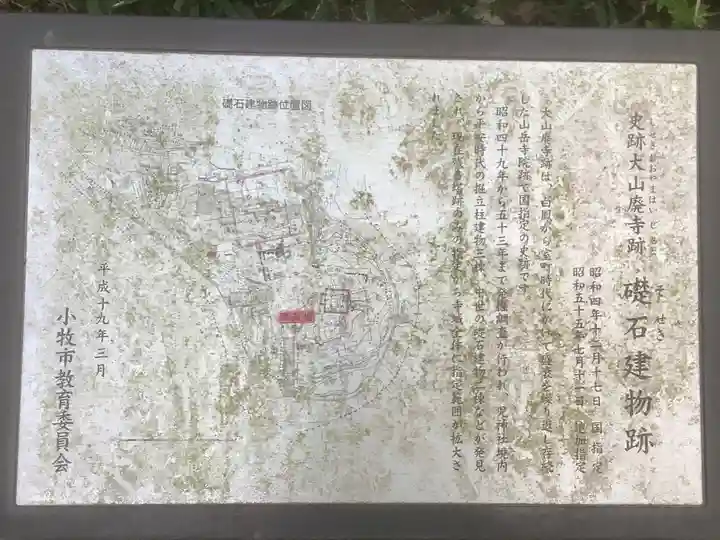 史跡大山廃寺跡 礎石建物跡
しせきおおやまはいじあと そせき
昭和四年十二月十七日 国指定
昭和五十五年七月十一日 追加指定
大山廃寺跡は、白鳳から室町時代にかけて盛衰を繰り返し存続
した山岳寺院跡で国指定の史跡です。
昭和四十九年から五十三年まで発掘調査が行われ、児神社境内
から平安時代の掘立柱建物三棟、中世の礎石建物二棟などが発見
され、現在
の
から寺域全体に指定範囲が拡大さ
れました。
平成十九年三月
小牧市教育委員会
礎石建物跡位置図